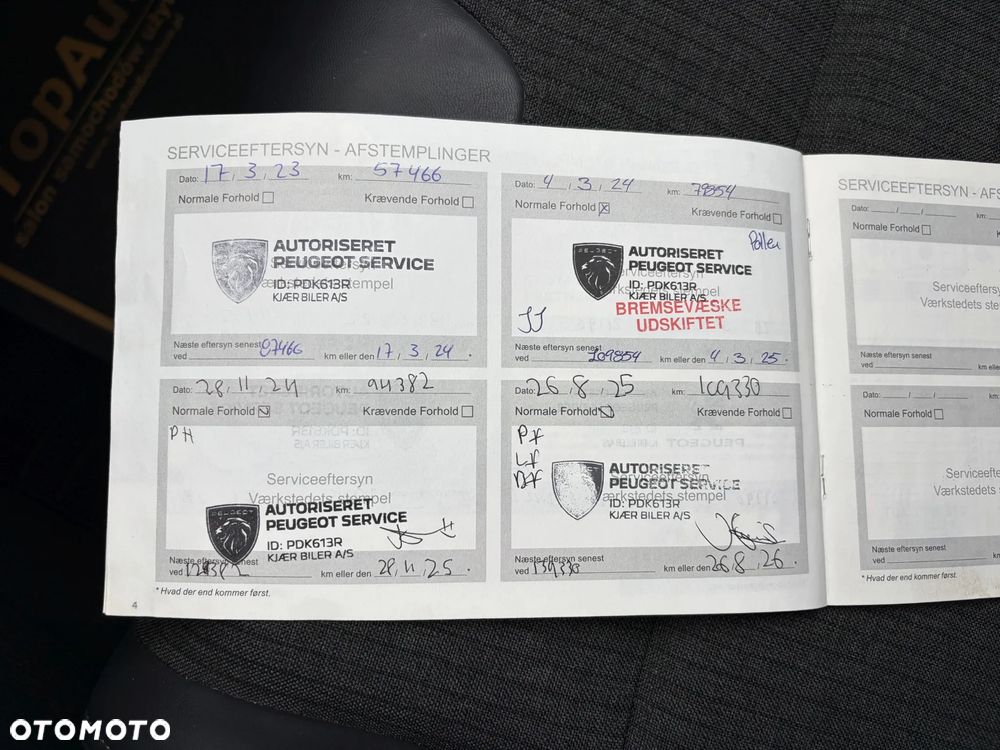 TopAuto
salon samochodów używ
SERVICEEFTERSYN - AFSTEMPLINGER
Dato: 17, 3, 23 km: 57466
Normale Forhold Krævende Forhold
AUTORISERET
PEUGEOT SERVICE
Serviceeftersyn
ID: PDK613R
Værkstedets stempel
KJÆR BILER A/S
Næste eftersyn senest
ved 87466 km eller den 17, 3, 24.
Dato: 4, 3, 24 km: 79854
Normale Forhold Krævende Forhold
Pollen
PEUGEOT
AUTORISERET
PEUGEOT SERVICE
Serviceeftersyn
ID: PDK613R
Værkstedets stempel
KJÆR BILER A/S
BREMSEVÆSKE
UDSKIFTET
JJ
Næste eftersyn senest
ved 109854 km eller den 4, 3, 25.
Dato: 28, 11, 24 km: 94382
Normale Forhold Krævende Forhold
PH
Serviceeftersyn
Værkstedets stempel
PEUGEOT
AUTORISERET
PEUGEOT SERVICE
ID: PDK613R
KJÆR BILER A/S
Næste eftersyn senest
ved km eller den 28, 11, 25.
Dato: 26, 8, 25 km: 109330
Normale Forhold Krævende Forhold
Pf
Lf
AUTORISERET
Serviceeftersyn
PEUGEOT SERVICE
Værkstedets stempel
ID: PDK613R
KJÆR BILER A/S
Næste eftersyn senest
ved 139330 km eller den 26, 8, 26.
* Hvad der end kommer først.
4
SERVICEEFTERSYN - AFS
Dato: / / km:
Normale Forhold
Serviceeftersy
Værkstedets ste
Næste eftersyn senest
ved km
Dato: / / km:
Normale Forhold
Serviceefters
Værkstedets s
Næste eftersyn senest
ved km
* Hvad der end kommer først.
OTOMOTO